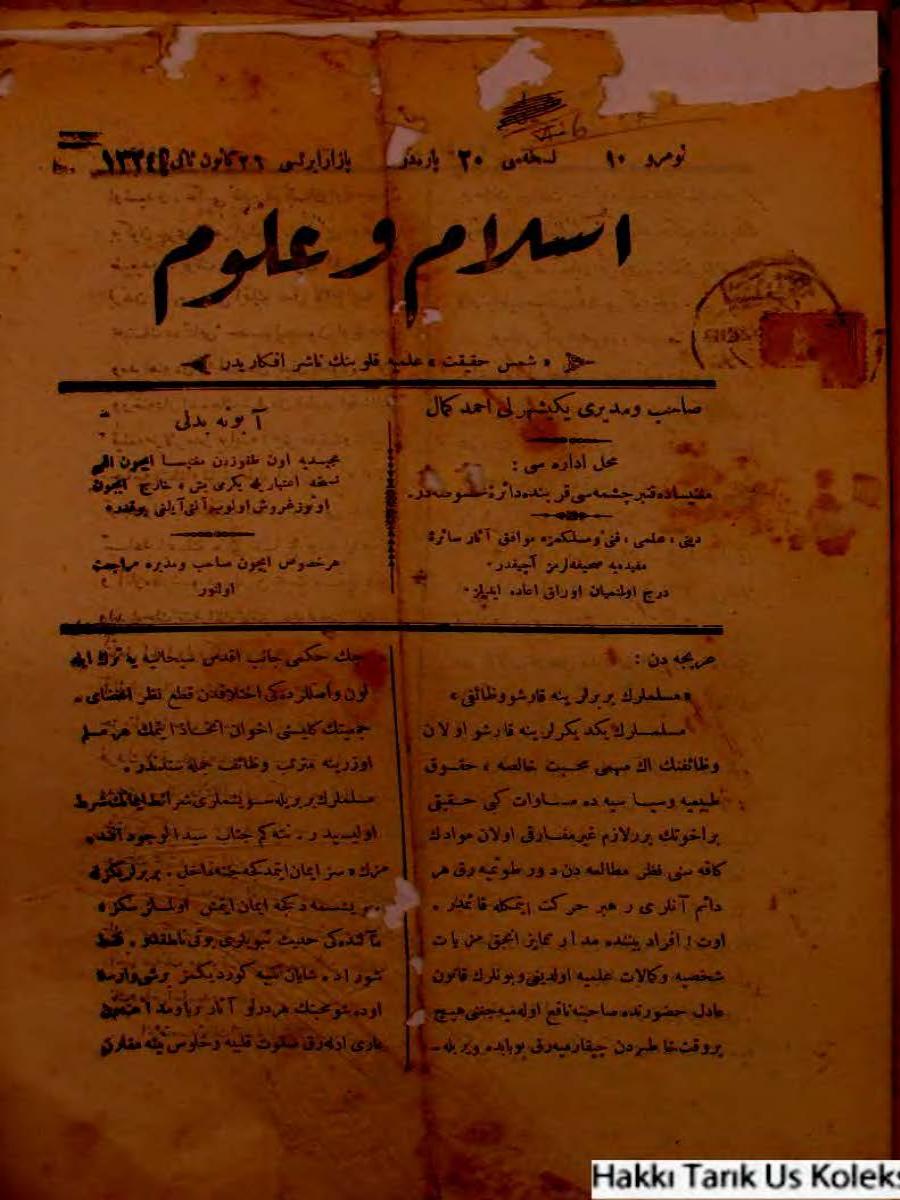 نومرو ١٠ نسخه‌سی ٢٠ پاره‌در بازار ایرتسی ٢٦ كانون ثانی
اسلام و علوم
« شمس حقیقت » علمیه قلوبنك ناشر افكاریدر
صاحب ومدیری یكیشهرلی احمد كمال
محل اداره سی :
مغنیساده قنبر چشمه‌سی قربنده دائرهٔ مخصوصه‌در.
دینی ، علمی ، فنی ومسلكمزه موافق آثار سائرهٔ
مفیدیه صحیفه‌لرمز آچیقدر.
درج اولنمیان اوراق اعاده ایدیلز.
آبونه بدلی
مجیدیه اون طقوزدن مغنیسا ایچون اللی
نسخه اعتباریله یكرمی بش ، خارج ایچون
اوتوز غروش اولوب آلتی آیلغی یوقدر.
هر خصوص ایچون صاحب ومدیره مراجعت
اولنور
عربجه دن :
« مسلملرك بربرلرینه قارشو وظائفی »
مسلملرك یكدیكرلرینه قارشو اولان
وظائفنك اك مهمی محبت خالصه ، حقوق
طبیعیه وسیاسیه ده مساوات كبی حقیقی
براخوتك برر لازم غیر مفارقی اولان موادك
كافه سنی نظر مطالعه دن دور طوتمیه رق هر
دائم آنلری رهبر حركت ایتمكله قائمدر .
اوت ! افراد بیننده مدار تمایز انجق مزیات
شخصیه وكمالات علمیه اولدیغنی وبونلرك قانون
عادل حضورنده صاحبنه نافع اوله‌میه‌جغنی هیچ
بروقت خاطردن چیقارمیه‌رق بوبابده ویریله-
جك حكمی جانب اقدس سبحانیه یه ترك ایله
لون واصللرده‌كی اختلافدن قطع نظر اعضای
جمعیتك كلیسنی اخوان اتخاذ ایتمك هر مسلم
اوزرینه مترتب وظائف جمله سندندر .
مسلملرك بربریله سویشملری شرائط ایمانك شرط
اولیسیدر . نته‌كم جناب سید الوجود افندمز
حزرت « سز ایمان ایتمدكجه جنته داخل ، بربریكزله
سویشمه‌دكجه ایمان ایتمش اولمازسكز »
مآلنده‌كی حدیث نبویلری بوكا ناطقدر . فقط
شوراده شایان تنبیه كوردیكمز برشی وارسه
اوده شومحبتك هردرلو آثار ریا ومداهنه‌دن
عاری اوله‌رق صفوت قلبیه وخلوص نیته مقارن
Hakkı Tarık Us Koleks